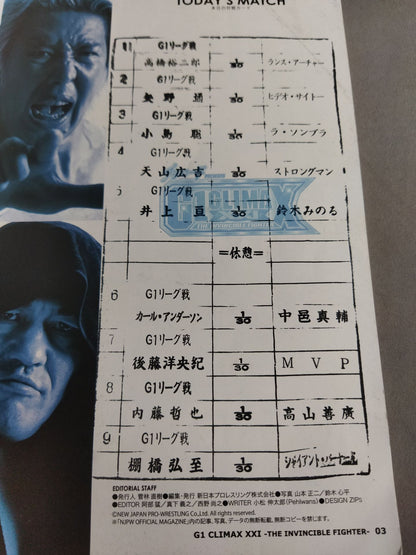 TODAY'S MATCH
本日の対戦カード
1 G1リーグ戦
高橋裕二郎 1/30 ランス・アーチャー
2 G1リーグ戦
矢野 通 1/30 ヒデオ・サイトー
3 G1リーグ戦
小島 聡 1/30 ラ・ソンブラ
4 G1リーグ戦
天山広吉 1/30 ストロングマン
5 G1リーグ戦
井上 亘 1/30 鈴木みのる
G1 CLIMAX
THE INVINCIBLE FIGHTER
=休憩=
6 G1リーグ戦
カール・アンダーソン 1/30 中邑真輔
7 G1リーグ戦
後藤洋央紀 1/30 MVP
8 G1リーグ戦
内藤哲也 1/30 高山善廣
9 G1リーグ戦
棚橋弘至 1/30 ジャイアント・バーナード
EDITORIAL STAFF
●発行人 菅林直樹●編集・発行 新日本プロレスリング株式会社●写真 山本正二/鈴木心平
●EDITOR 阿部 猛/真下義之/西野尚之●WRITER 小松伸太郎(Pehlwans)●DESIGN ZIPs
©NEW JAPAN PRO-WRESTLING Co,Ltd. All Rights Reserved.
※「NJPW OFFICIAL MAGAZINE」内の記事、写真、データの無断転載、無断コピーを禁じます。
G1 CLIMAX XXI -THE INVINCIBLE FIGHTER- 03